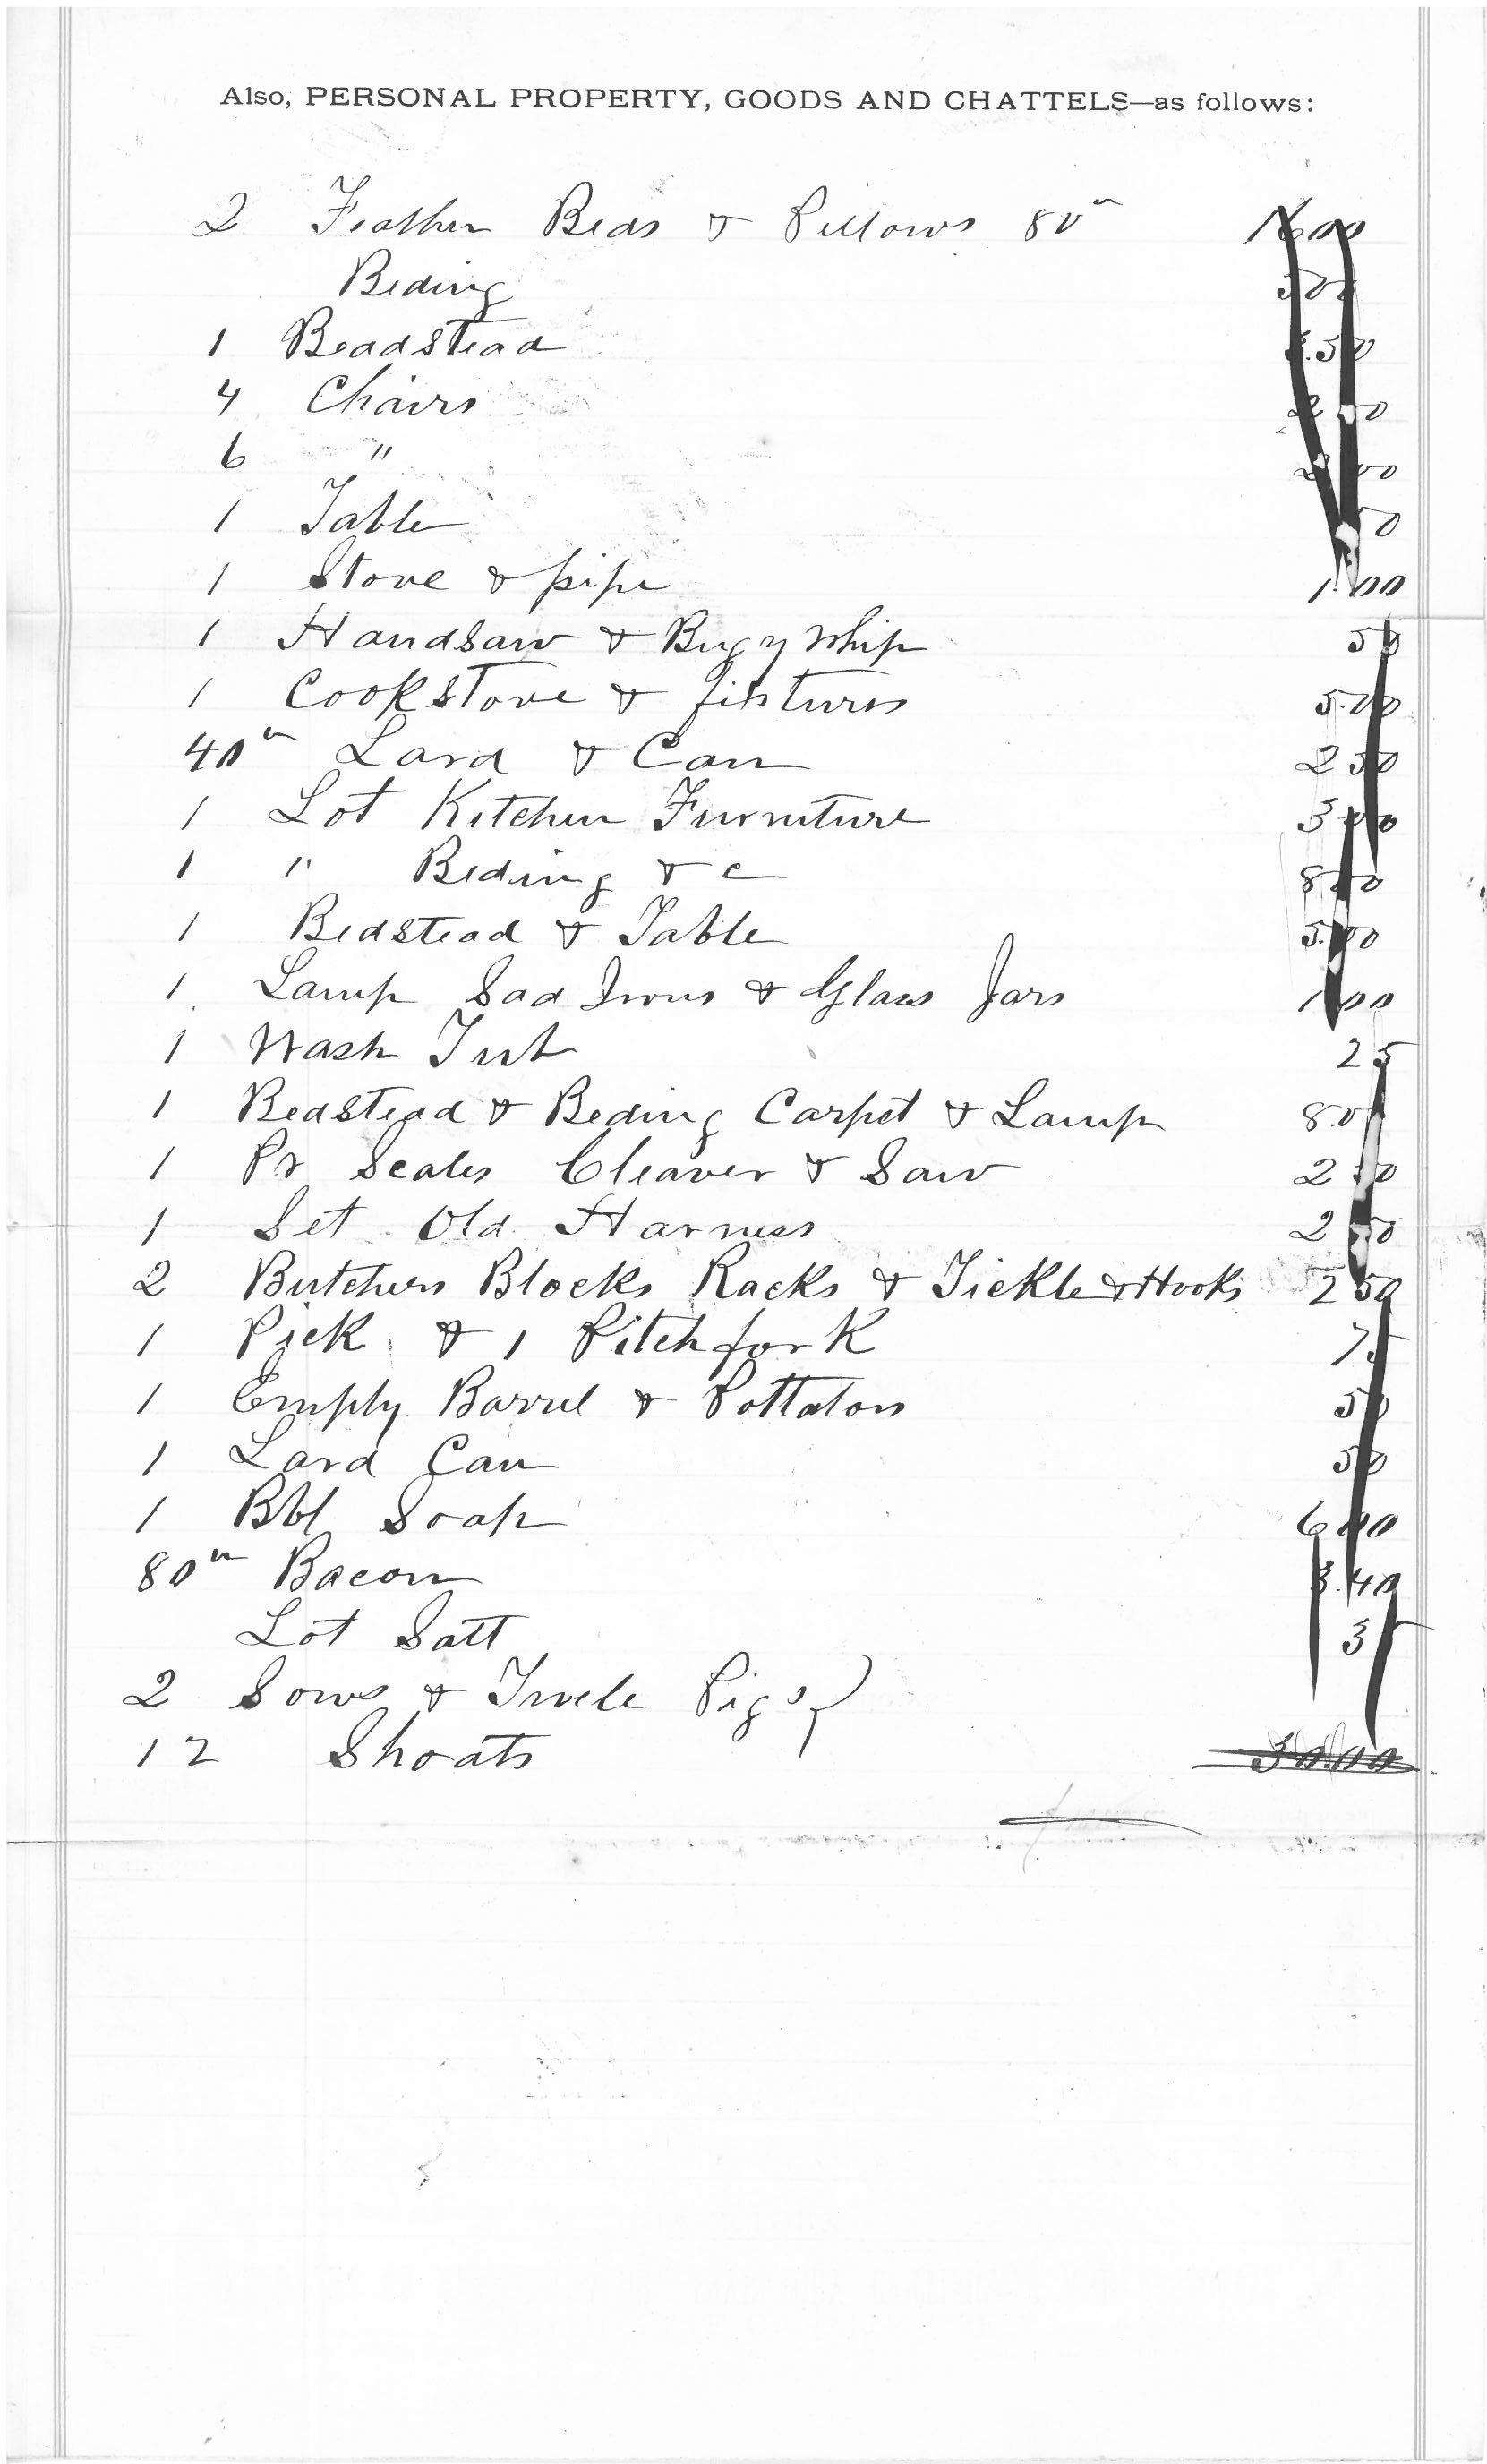 Also, PERSONAL PROPERTY, GOODS AND CHATTELS—as follows:
2 Feather Beds & Pillows 80" 16 00
Beding 5 00
1 Beadstead 3.50
4 Chairs 2 50
6 " 2 00
1 Table 50
1 Stove & pipe 1.00
1 Handsaw & Bugy Whip 50
1 Cookstove & fixtures 5.00
40" Lard & Can 2 50
1 Lot Kitchen Furniture 3 00
1 " Beding & c 8 00
1 Bedstead & Table 5.00
1 Lamp Sad Irons & Glass Jars 1 00
1 Wash Tub 25
1 Bedstead & Beding Carpet & Lamp 8.00
1 Pr Scales Cleaver & Saw 2 50
1 Set Old Harness 2 50
2 Butchers Blocks Racks & Tickle & Hooks 2 50
1 Pick & 1 Pitchfork 75
1 Empty Barrel & Pottatoes 50
1 Lard Can 50
1 Bbl Soap 6 00
80" Bacon 3.40
Lot Salt 35
2 Sows & Twele Pigs }
12 Shoats 30.00